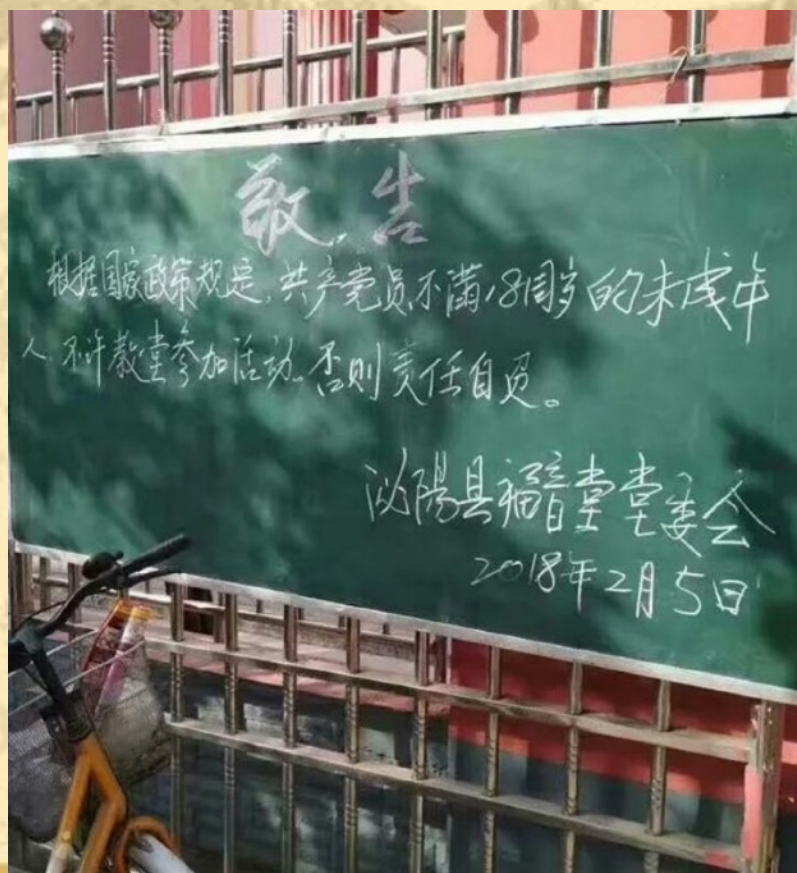 敬告
根据国家政策规定,共产党员不满18周岁的未成年
人.不许教堂参加活动.否则责任自负。
泌阳县福音堂堂委会
2018年2月5日